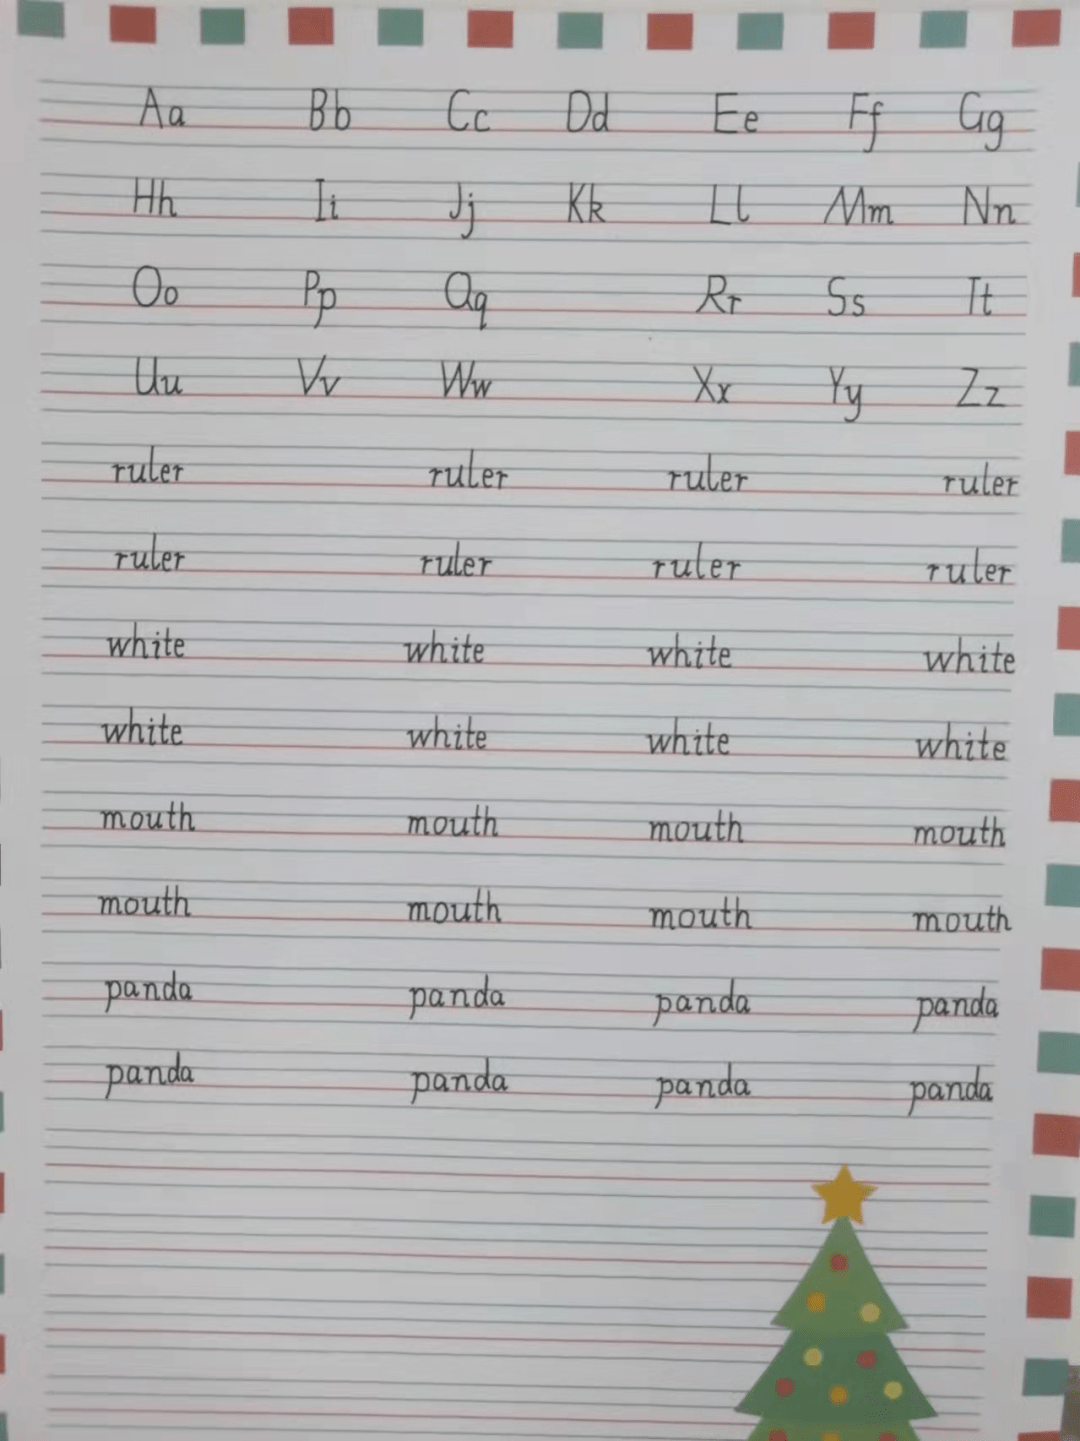 Aa Bb Cc Dd Ee Ff Gg
Hh Ii Jj Kk Ll Mm Nn
Oo Pp Qq Rr Ss Tt
Uu Vv Ww Xx Yy Zz
ruler ruler ruler ruler
ruler ruler ruler ruler
white white white white
white white white white
mouth mouth mouth mouth
mouth mouth mouth mouth
panda panda panda panda
panda panda panda panda